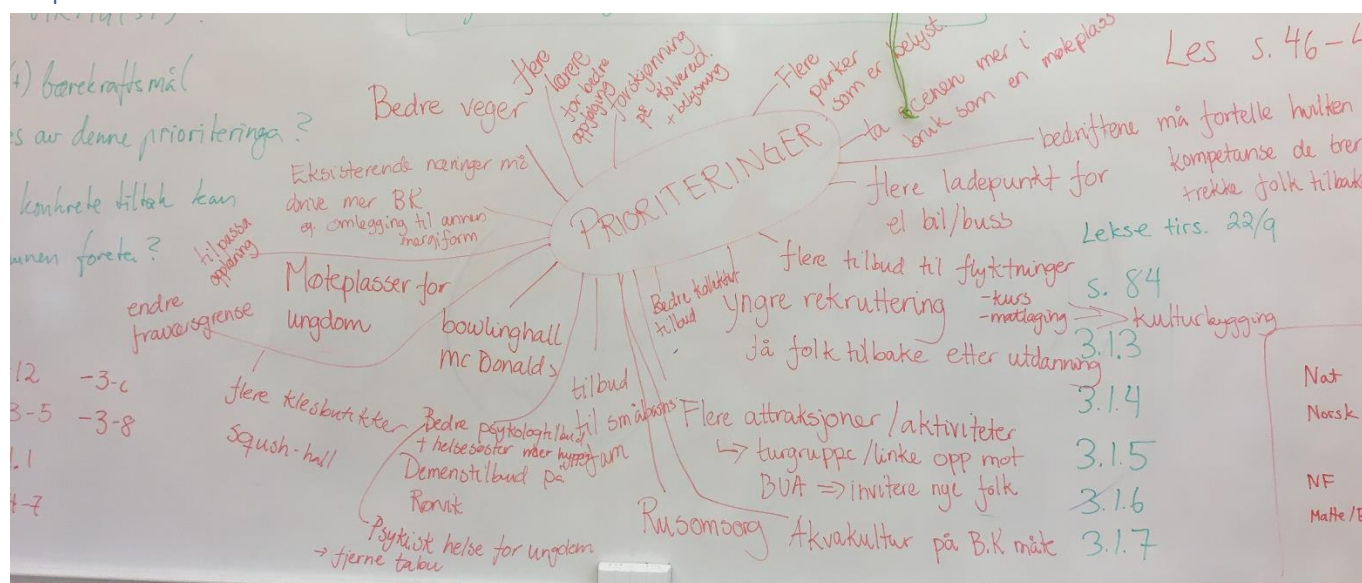 (+) bærekraftsmål
s av denne prioriteringa?
konkrete tiltak kan
foreta?
12 -3-c
3-5 -3-8
.1
-7
PRIORITERINGER
Bedre veger
flere
lærere
for bedre
oppfølging
forskjønning
på Kolvereid.
+ belysning
Flere
parker
som er belyst.
ta scenen mer i
bruk som en møteplass
bedriftene må fortelle hvilken
kompetanse de tren
trekke folk tilbake
flere ladepunkt for
el bil/buss
flere tilbud til flyktninger
-kurs
-matlaging
kulturbygging
Yngre rekruttering
få folk tilbake etter utdanning
Bedre kollektivt
tilbud
Flere attraksjoner/aktiviteter
↳ turgruppe/linke opp mot
BUA => invitere nye folk
Akvakultur på B.K måte
Rusomsorg
tilbud
til småbarns
fam
Bedre psykologtilbud
+ helsesøster mer hyppig
Demenstilbud på
Rørvik
Psykisk helse for ungdom
→ fjerne tabu
bowlinghall
mc Donalds
Møteplasser for
ungdom
flere klesbutikker
sqush-hall
endre
fraværsgrense
tilpassa
opplæring
Eksisterende næringer må
drive mer BK
eg. omlegging til annen
energiform
Les s. 46-4
Lekse tirs. 22/9
s. 84
3.1.3
3.1.4
3.1.5
3.1.6
3.1.7
Nat
Norsk
NF
Matte/E